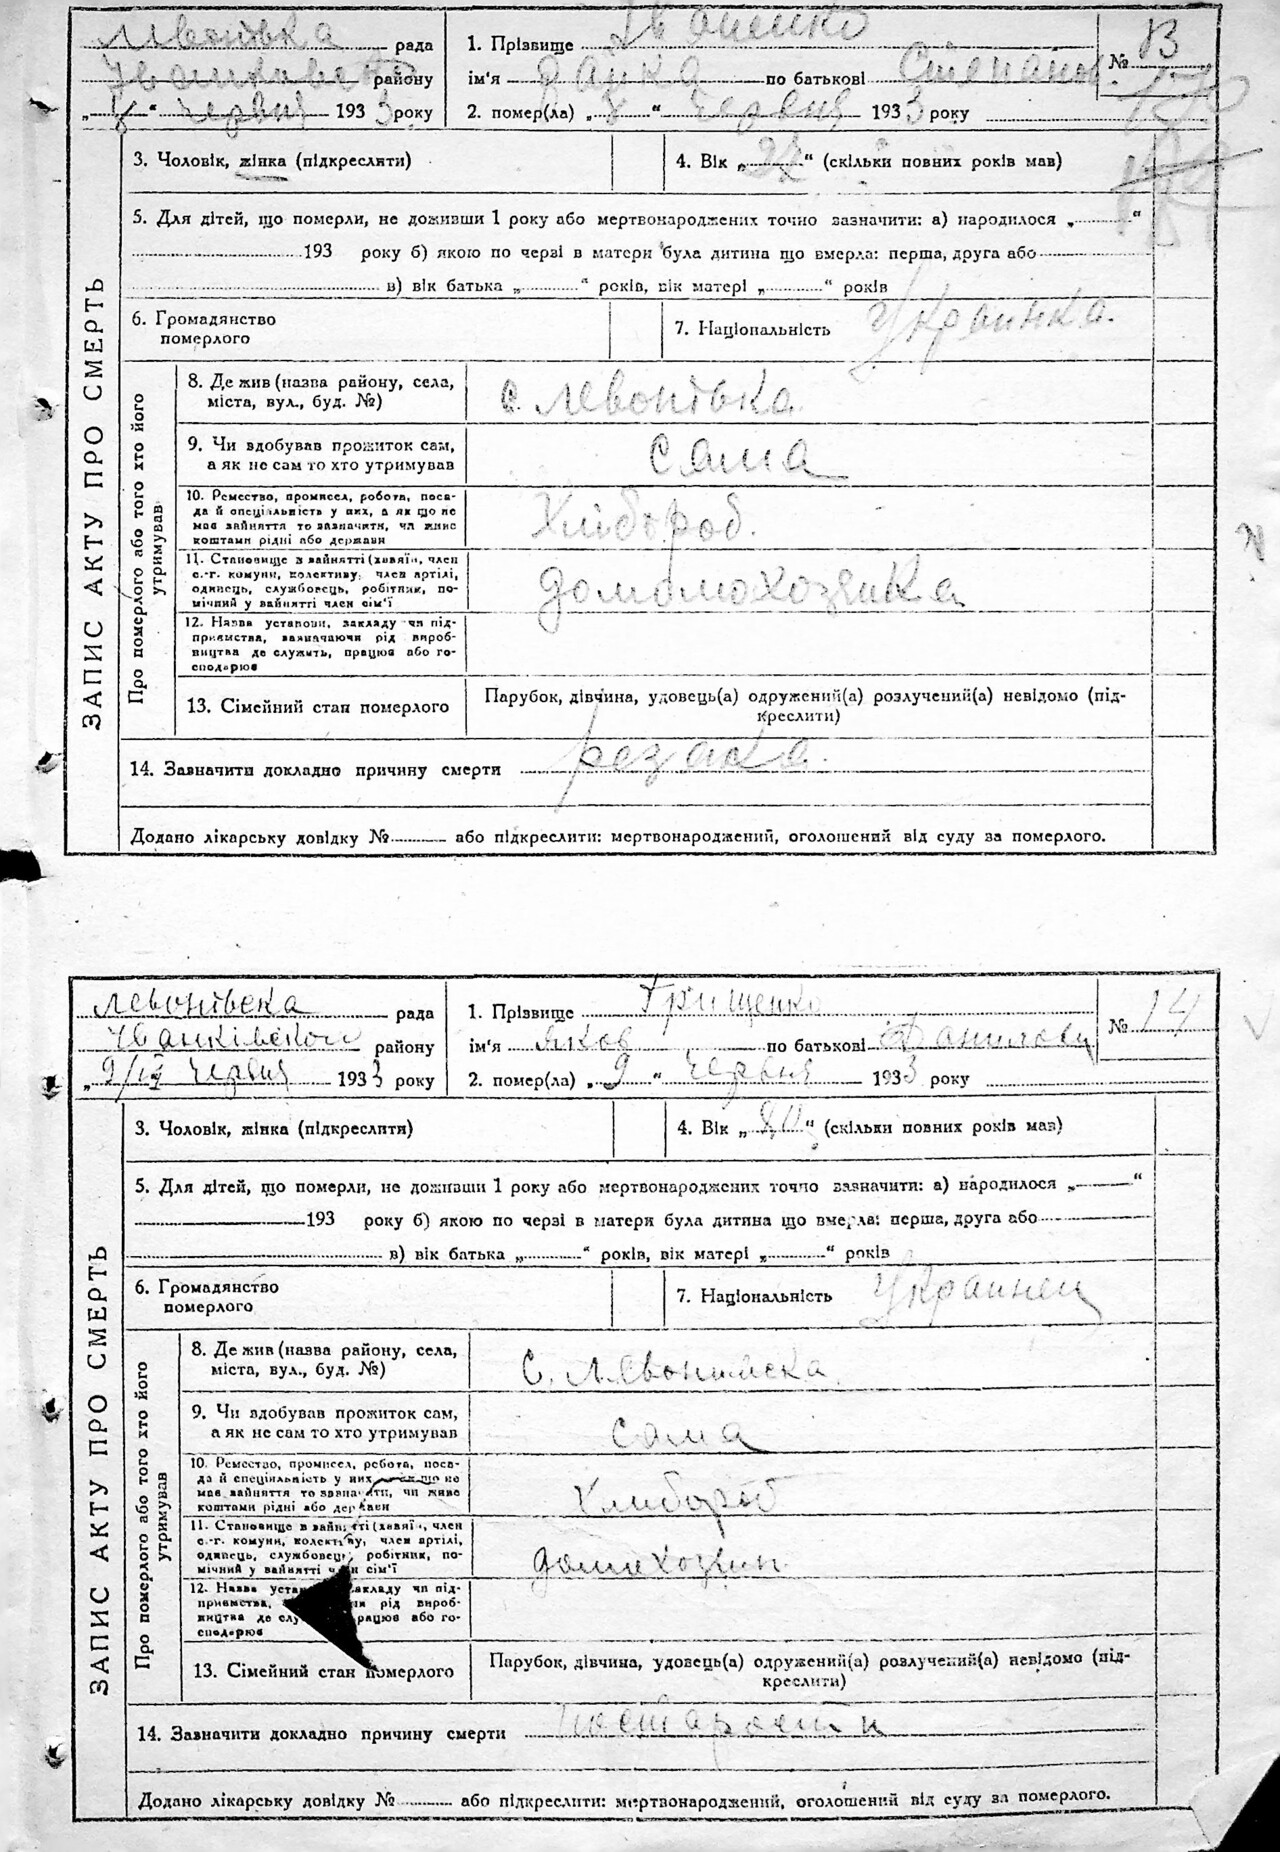 Левонівка рада
району
„ 8 “ Червня 1933 року
1. Прізвище Іваненко
ім'я по батькові Степанов
2. помер(ла) „ 8 “ Червня 1933 року
№ 13
3. Чоловік, жінка (підкреслити)
4. Вік „ “ (скільки повних років мав)
5. Для дітей, що померли, не доживши 1 року або мертвонароджених точно зазначити: а) народилося „ “
193 року б) якою по черзі в матери була дитина що вмерла: перша, друга або
в) вік батька „ “ років, вік матері „ “ років
6. Громадянство
померлого
7. Національність Украинка.
ЗАПИС АКТУ ПРО СМЕРТЬ
Про померлого або того хто його
утримував
8. Де жив (назва району, села,
міста, вул., буд. №)
с. Левонівка
9. Чи вдобував прожиток сам,
а як не сам то хто утримував
сама
10. Ремество, промисел, робота, поса-
да й спеціальність у них, а як що не
мав вайняття то зазначити, чи живе
коштами рідні або держави
Хлібороб.
11. Становище в вайнятті (хазяїн, член
с.-г. комуни, колективу, член артілі,
одинець, службовець, робітник, по-
мічний у вайнятті член сім'ї
домомохозяика
12. Назва установи, закладу чи під-
приємства, вазначаючи рід вироб-
ництва де служить, працює або го-
сподарює
13. Сімейний стан померлого
Парубок, дівчина, удовець(а) одружений(а) розлучений(а) невідомо (під-
креслити)
14. Зазначити докладно причину смерти резака.
Додано лікарську довідку № або підкреслити: мертвонароджений, оголошений від суду за померлого.
Левонівека рада
Іванківскои району
Червня 1933 року
1. Прізвище Грищенко
ім'я Яков по батькові Данилови
2. помер(ла) „ 9 “ Червня 1933 року
№ 14
3. Чоловік, жінка (підкреслити)
4. Вік „ 80 “ (скільки повних років мав)
5. Для дітей, що померли, не доживши 1 року або мертвонароджених точно зазначити: а) народилося „ “
193 року б) якою по черзі в матери була дитина що вмерла: перша, друга або
в) вік батька „ “ років, вік матері „ “ років
6. Громадянство
померлого
7. Національність Украинец
ЗАПИС АКТУ ПРО СМЕРТЬ
Про померлого або того хто його
утримував
8. Де жив (назва району, села,
міста, вул., буд. №)
с.
9. Чи вдобував прожиток сам,
а як не сам то хто утримував
сама
10. Ремество, промисел, робота, поса-
да й спеціальність у них що не
мав вайняття то зазначити, чи живе
коштами рідні або держави
Хлибороб
11. Становище в вайнятті (хазяїн, член
с.-г. комуни, колективу, член артілі,
одинець, службовець, робітник, по-
мічний у вайнятті член сім'ї
домохозяин
12. Назва закладу чи під-
приємства, рід вироб-
ництва де працює або го-
сподарює
13. Сімейний стан померлого
Парубок, дівчина, удовець(а) одружений(а) розлучений(а) невідомо (під-
креслити)
14. Зазначити докладно причину смерти постарости
Додано лікарську довідку № або підкреслити: мертвонароджений, оголошений від суду за померлого.